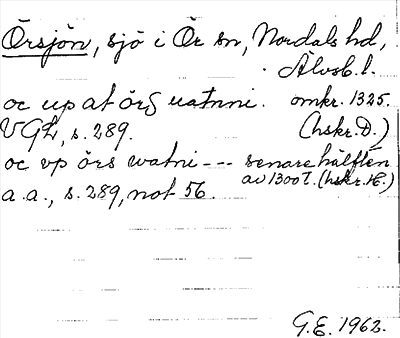 Örsjön, sjö i Ör sn, Nordals hd,
Älvsb. l.
oc up at örs uatnni. omkr. 1325.
VGL, s. 289. (hskr. D.)
oc vp örs watni --- senare hälften
a.a., s. 289, not 56. av 1300 t. (hskr. H.)
G.E. 1962.